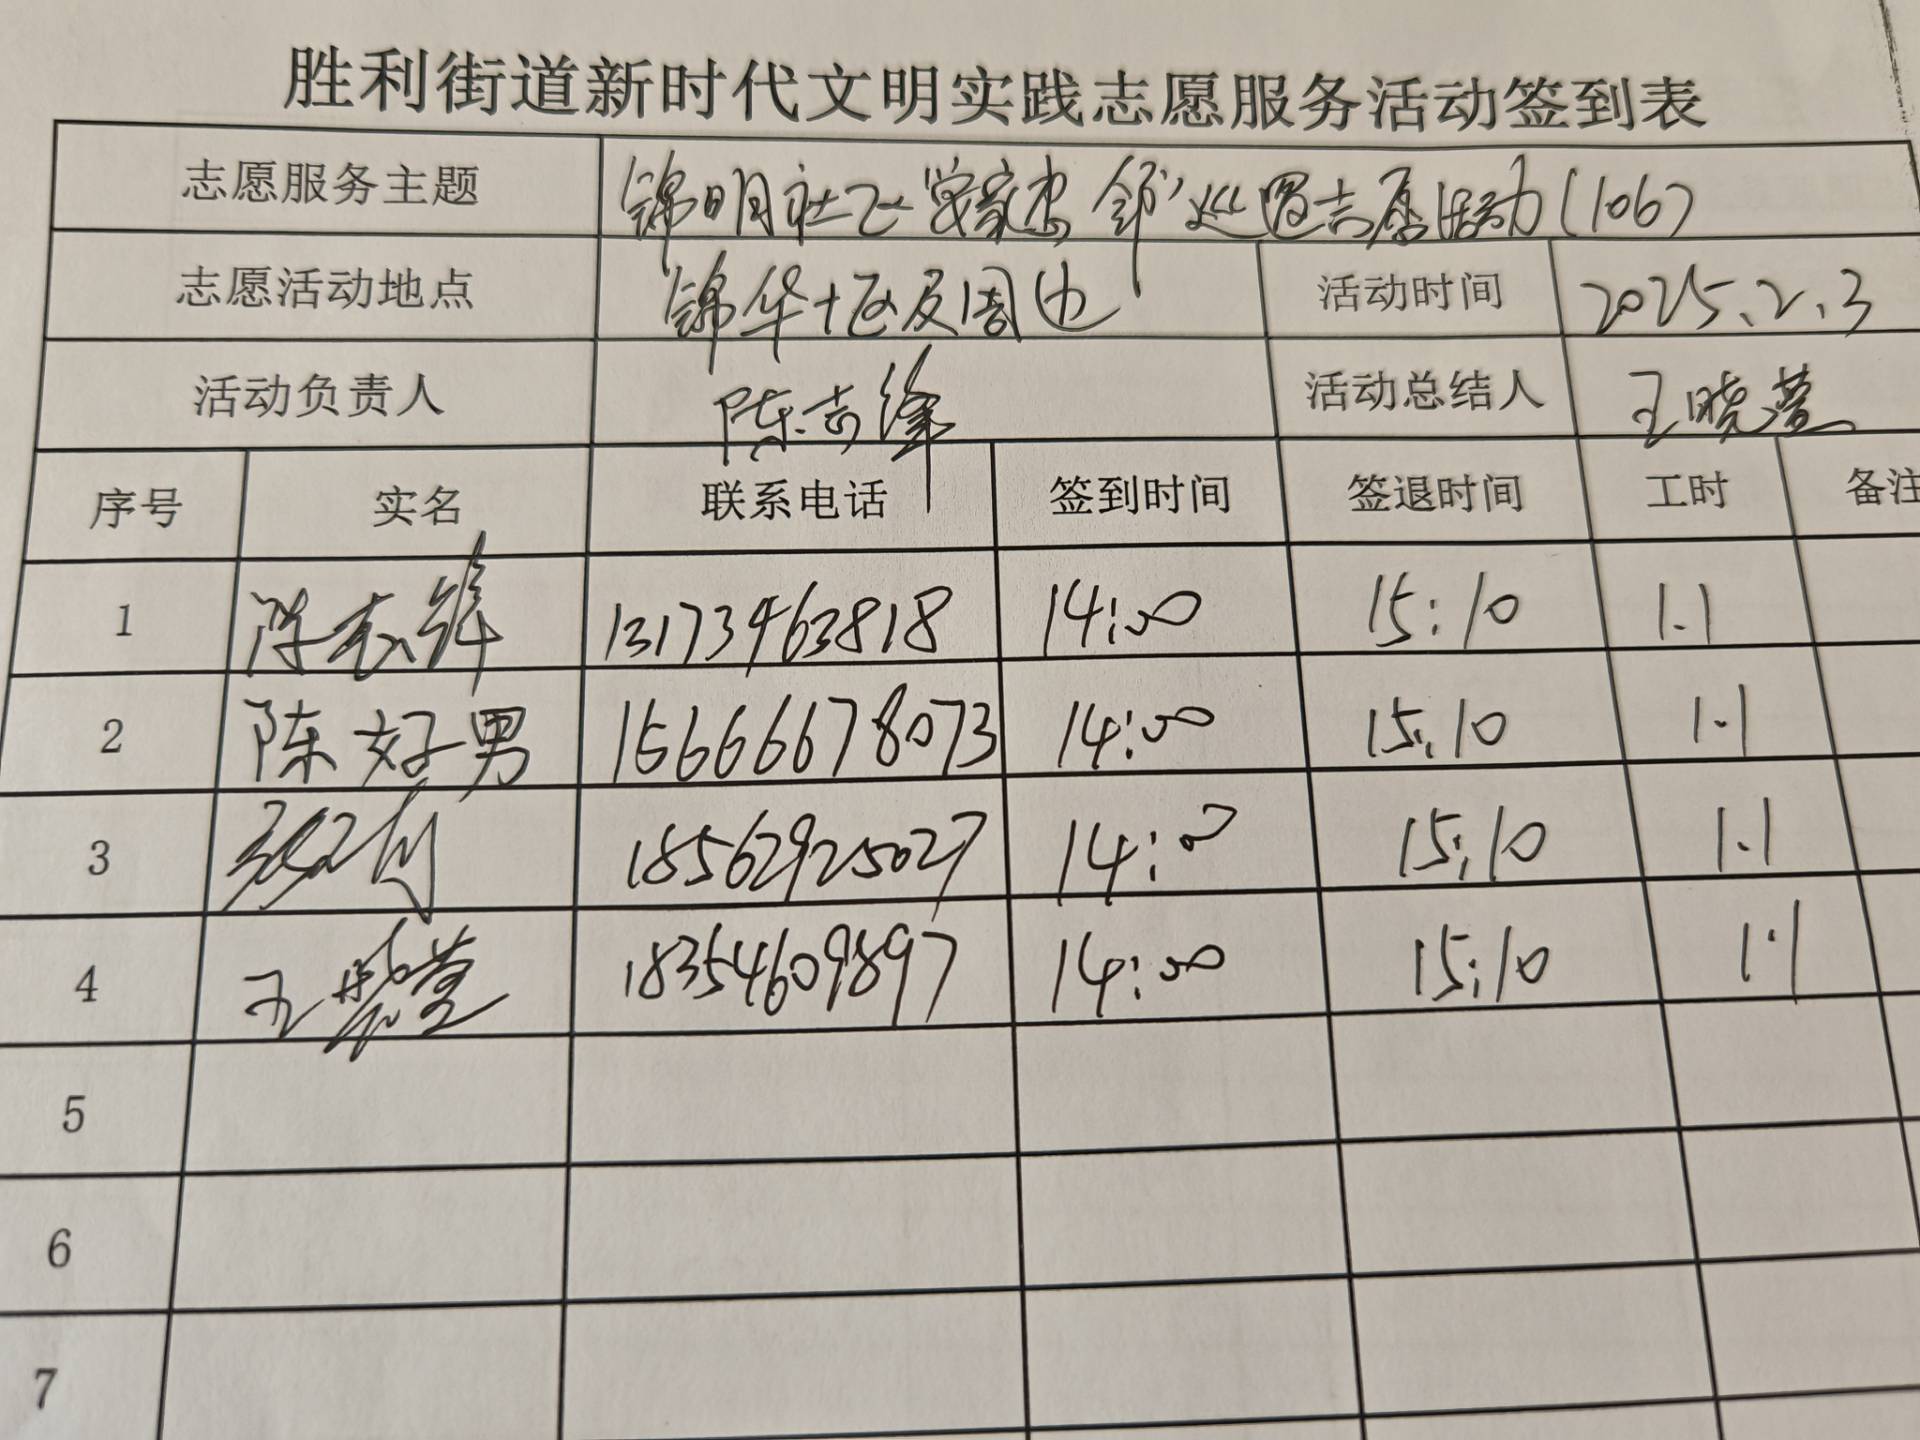 胜利街道新时代文明实践志愿服务活动签到表
志愿服务主题 锦明社区 巡逻志愿活动(106)
志愿活动地点 锦华十区及周边 活动时间 2025.2.3
活动负责人 陈志锋 活动总结人 王晓莹
序号 实名 联系电话 签到时间 签退时间 工时 备注
1 陈志锋 13173463818 14:00 15:10 1.1
2 陈好男 15666678073 14:00 15:10 1.1
3 18562925027 14:00 15:10 1.1
4 王晓莹 18354609897 14:00 15:10 1.1
5
6
7